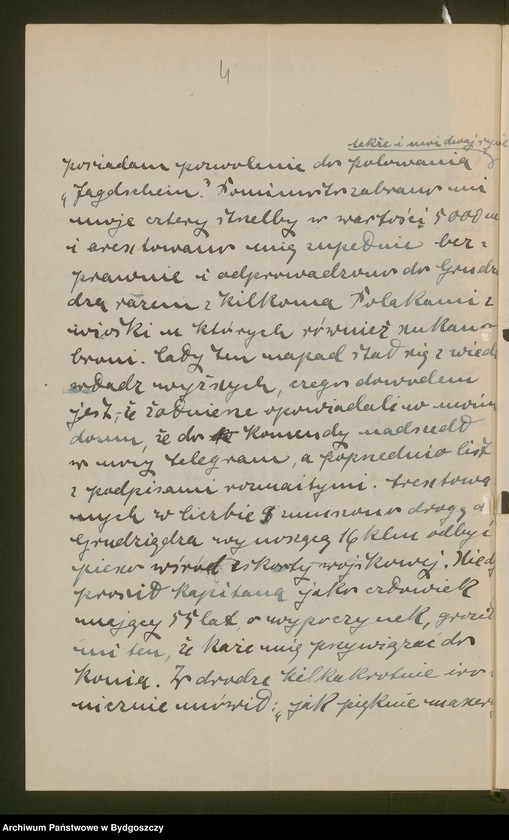 4
także i moi dwaj
posiadam pozwolenie do polowania
„Jagdschein." Pomimo to zabrano mi
moje cztery strzelby w wartości 5000 m
i aresztowano mię zupełnie bez-
prawnie i odprowadzono do Grudzą
dzą razem z kilkoma Polakami z
wioski u których również szukano
broni. Cały ten napad stał się z wied
władz wyższych, czego dowodem
jest, że żołnierze opowiadali w moim
domu, że do komendy nadszedł
w nocy telegram, a poprzednio list
z podpisami rozmaitymi. Aresztowa
nych w liczbie 8 zmuszono drogę d
Grudziądza wynoszącą 16 klm odbyć
pieszo wśród eskorty wojskowej. Kiedy
prosił kapitana jako człowiek
mający 55 lat, o wypoczynek, groził
mi ten, że każe mię przywiązać do
konia. W drodze kilkakrotnie iro-
nicznie mówił: „jak pięknie maszer
Archiwum Państwowe w Bydgoszczy